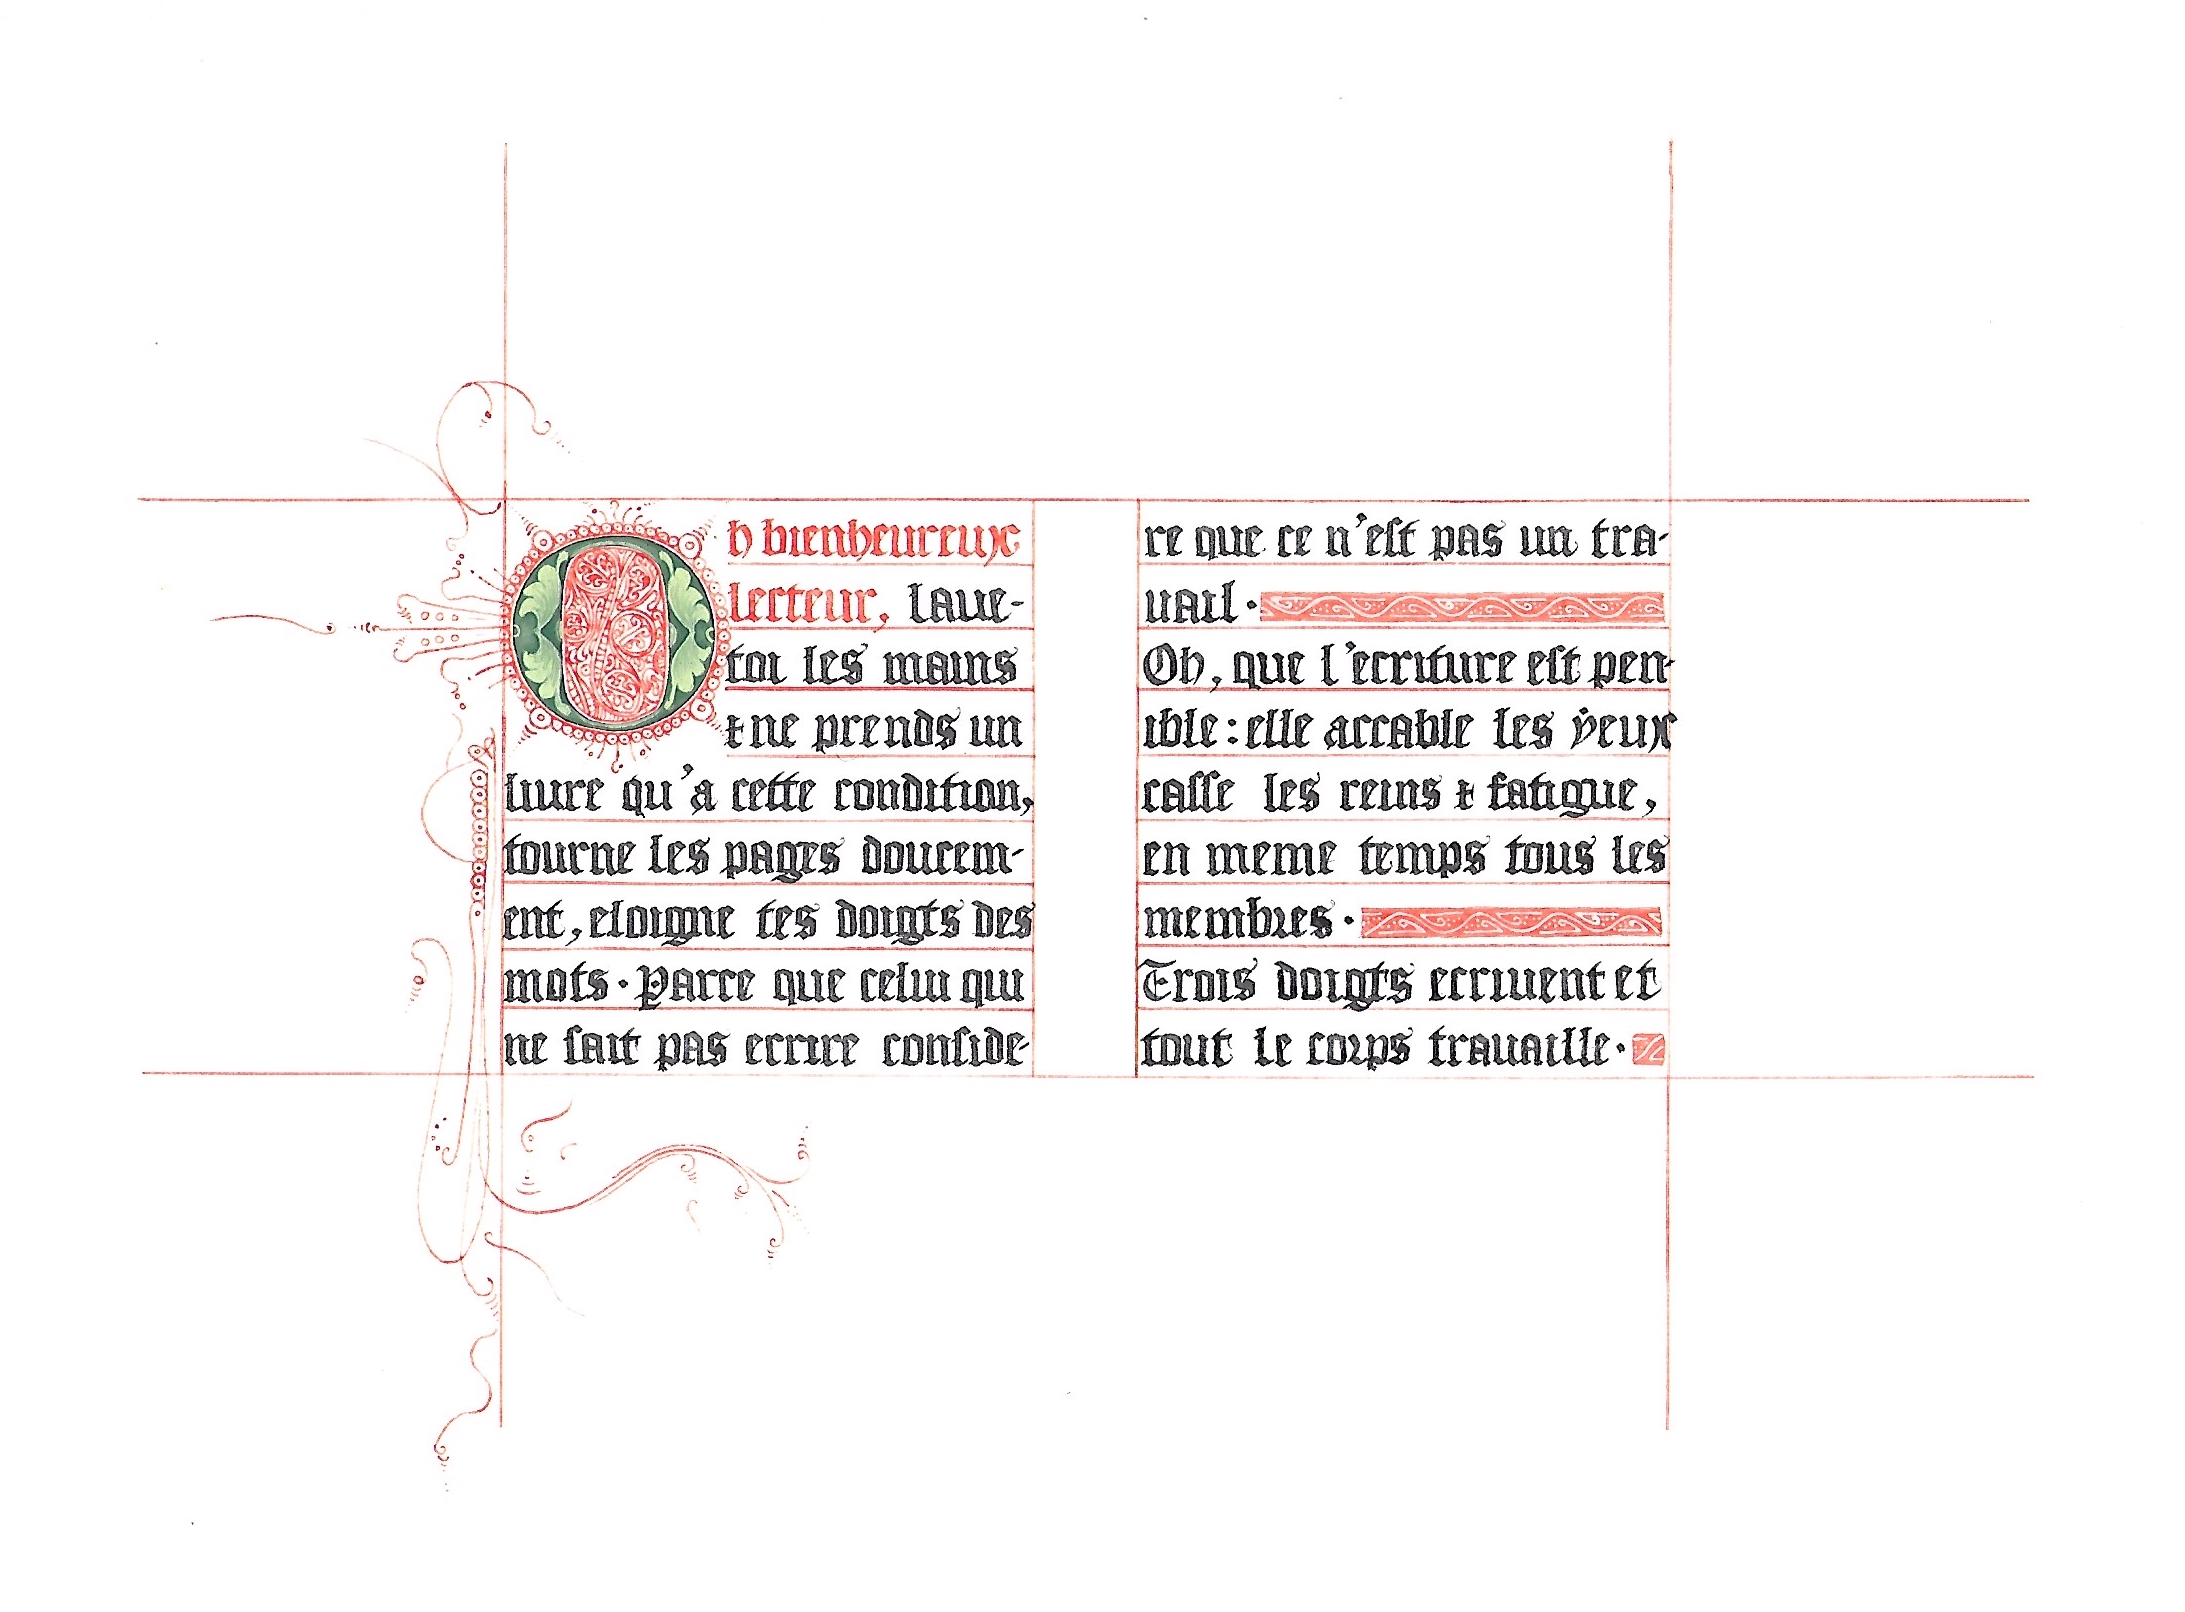 Oh bienheureux
lecteur, laue-
toi les mains
& ne prends un
liure qu'a cette condition,
tourne les pages doucem-
ent, eloigne tes doigts des
mots · Parce que celui qui
ne ſait pas ecrire conſide-
re que ce n'eſt pas un tra-
uail ·
Oh, que l'ecriture eſt pen-
ible : elle accable les yeux
caſſe les reins & fatigue,
en meme temps tous les
membres ·
Trois doigts ecriuent et
tout le corps trauaille ·